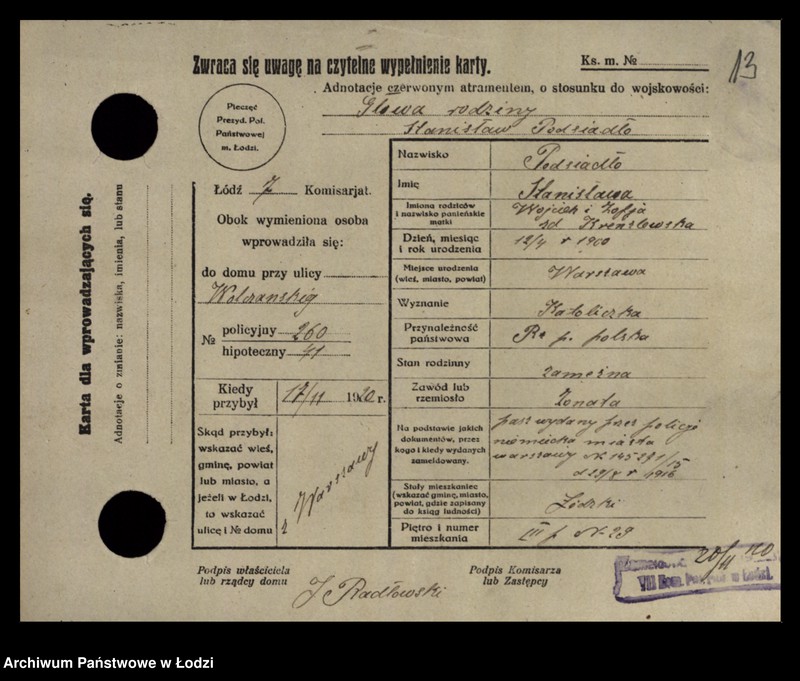 Zwraca się uwagę na czytelne wypełnienie karty.
Ks. m. №
13
Adnotacje czerwonym atramentem, o stosunku do wojskowości:
Głowa rodziny
Stanisław Podsiadło
Pieczęć
Prezyd. Pol.
Państwowej
m. Łodzi.
Karta dla wprowadzających się.
Adnotacje o zmianie: nazwiska, imienia, lub stanu
Łódź 7 Komisarjat.
Obok wymieniona osoba
wprowadziła się:
do domu przy ulicy
Wolczanskiej
№ policyjny 260
hipoteczny 41
Kiedy przybył 17/11 1920 r.
Skąd przybył:
wskazać wieś,
gminę, powiat
lub miasto, a
jeżeli w Łodzi,
to wskazać
ulicę i № domu
z Warszawy
Nazwisko Podsiadło
Imię Stanisława
Imiona rodziców
i nazwisko panieńskie
matki
Wojciech i Zofja
zd. Krenzlewska
Dzień, miesiąc
i rok urodzenia
r 1900
Miejsce urodzenia
(wieś, miasto, powiat)
Warszawa
Wyznanie Katoliczka
Przynależność
państwowa
p. polska
Stan rodzinny zamężna
Zawód lub
rzemiosło
Żonata
Na podstawie jakich
dokumentów, przez
kogo i kiedy wydanych
zameldowany.
pasz wydany przez policje
niemiecka miasta
warszawy № 145291/15
r 1916
Stały mieszkaniec
(wskazać gminę, miasto,
powiat, gdzie zapisany
do ksiąg ludności)
Łódzki
Piętro i numer
mieszkania
III p. № 29
Podpis właściciela
lub rządcy domu
J Radłowski
Podpis Komisarza
lub Zastępcy
20/11 20
VII Kom. w Łodzi.
Archiwum Państwowe w Łodzi